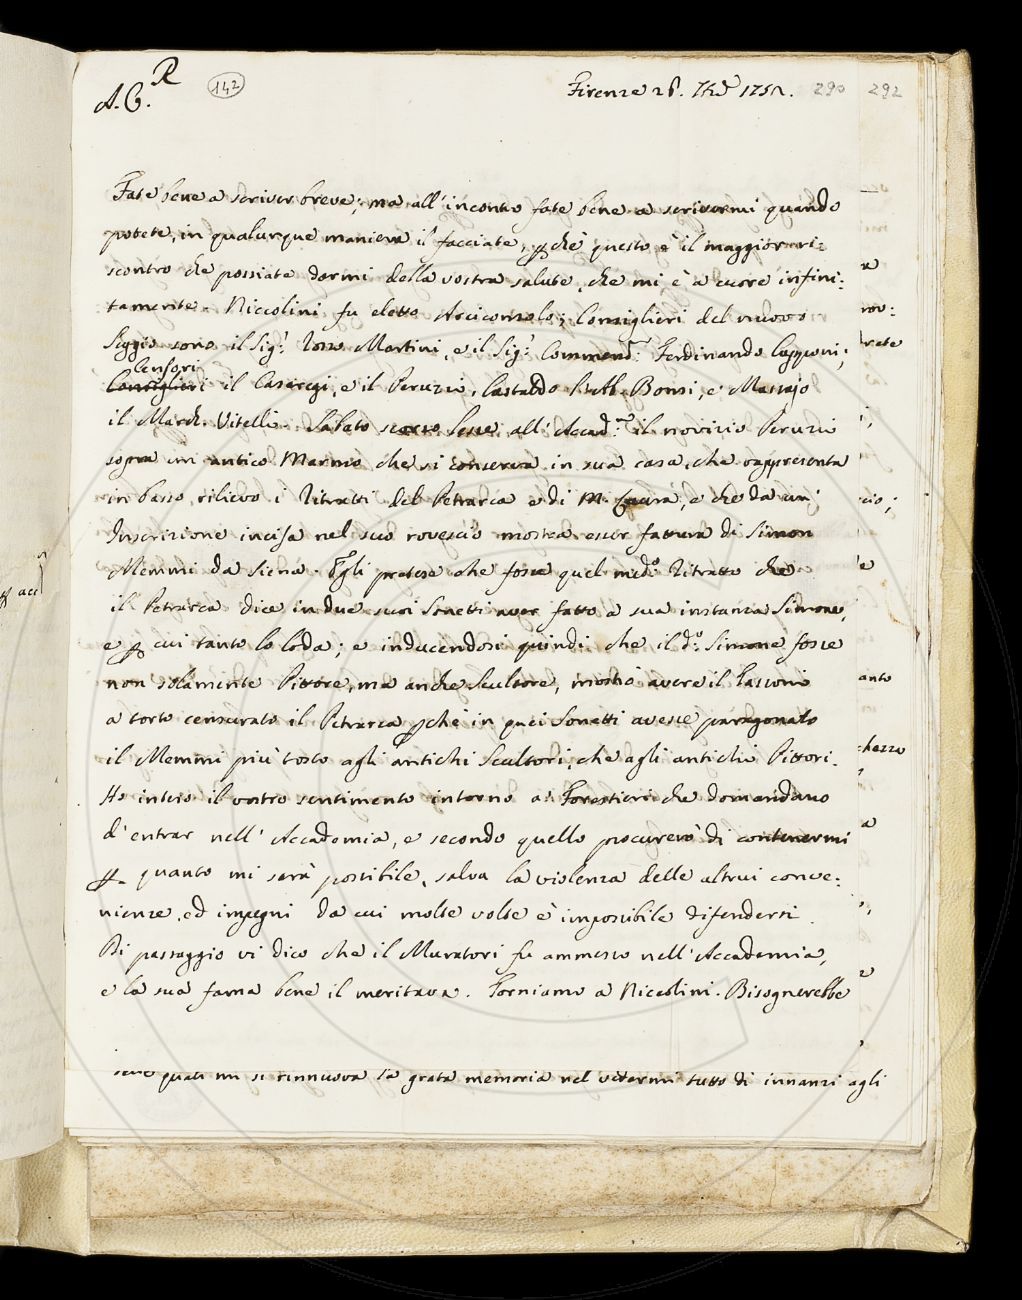 A. C. R
142
Firenze 26. 7bre 1752. 290 292
Fate bene a scriver breve; ma all'incontro fate bene a scrivermi quando
potete, in qualunque maniera il facciate, perche questo è il maggior ri:
scontro che possiate darmi della vostra salute, che mi è a cuore infini:
tamente. Niccolini fu eletto Arciconsolo; Consiglieri del nuovo
Seggio sono il Sigr. Rosso Martini, e il Sigr. Commendr. Ferdinando Capponi;
Censori
Consiglieri il Casaregi, e il Peruzzi, Castaldo Bonsi, e Massajo
il March. Vitelli. Sabato scorso lesse all'Accad. il novizio Peruzzi
sopra un antico Marmo che si conserva in sua casa, che rappresenta
in basso rilievo i Ritratti del Petrarca e di M. Laura, e che da un'
Inscrizione incisa nel suo rovescio mostra esser fattura di Simon
Memmi da Siena. Egli pretese che fosse quel medo. Ritratto che
il Petrarca dice in due suoi Sonetti aver fatto a sua instanza Simone,
e per cui tanto lo loda; e inducendosi quindi che il do. Simone fosse
non solamente Pittore, ma anche Scultore, mostrò avere il Tassoni
a torto censurato il Petrarca perchè in quei Sonetti avesse paragonato
il Memmi più tosto agli antichi Scultori, che agli antichi Pittori.
Ho inteso il vostro sentimento intorno a' Forestieri che domandano
d'entrar nell'Accademia, e secondo quello procurerò di contenermi
per quanto mi sarà possibile, salva la violenza delle altrui conve:
nienze, ed impegni da cui molte volte è impossibile difendersi.
Di passaggio vi dico che il Muratori fu ammesso nell'Accademia,
e la sua fama bene il meritava. Torniamo a Niccolini. Bisognerebbe
quali mi si rinnuova la grata memoria nel vedermi tutto dì innanzi agli